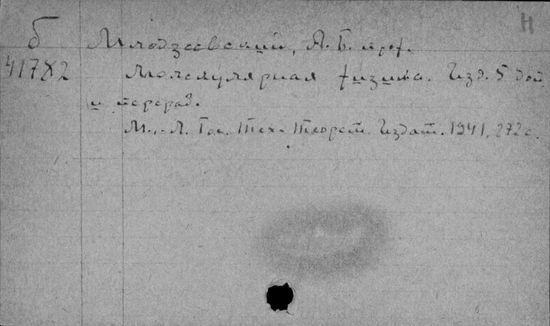 Н
б Млодзеевский, А. Б. проф.
41782 Молекулярная физика. Изд. 5 доп
и перераб.
М.-Л. Гос. Техн. Теорет. Издат. 1941, 272 с.